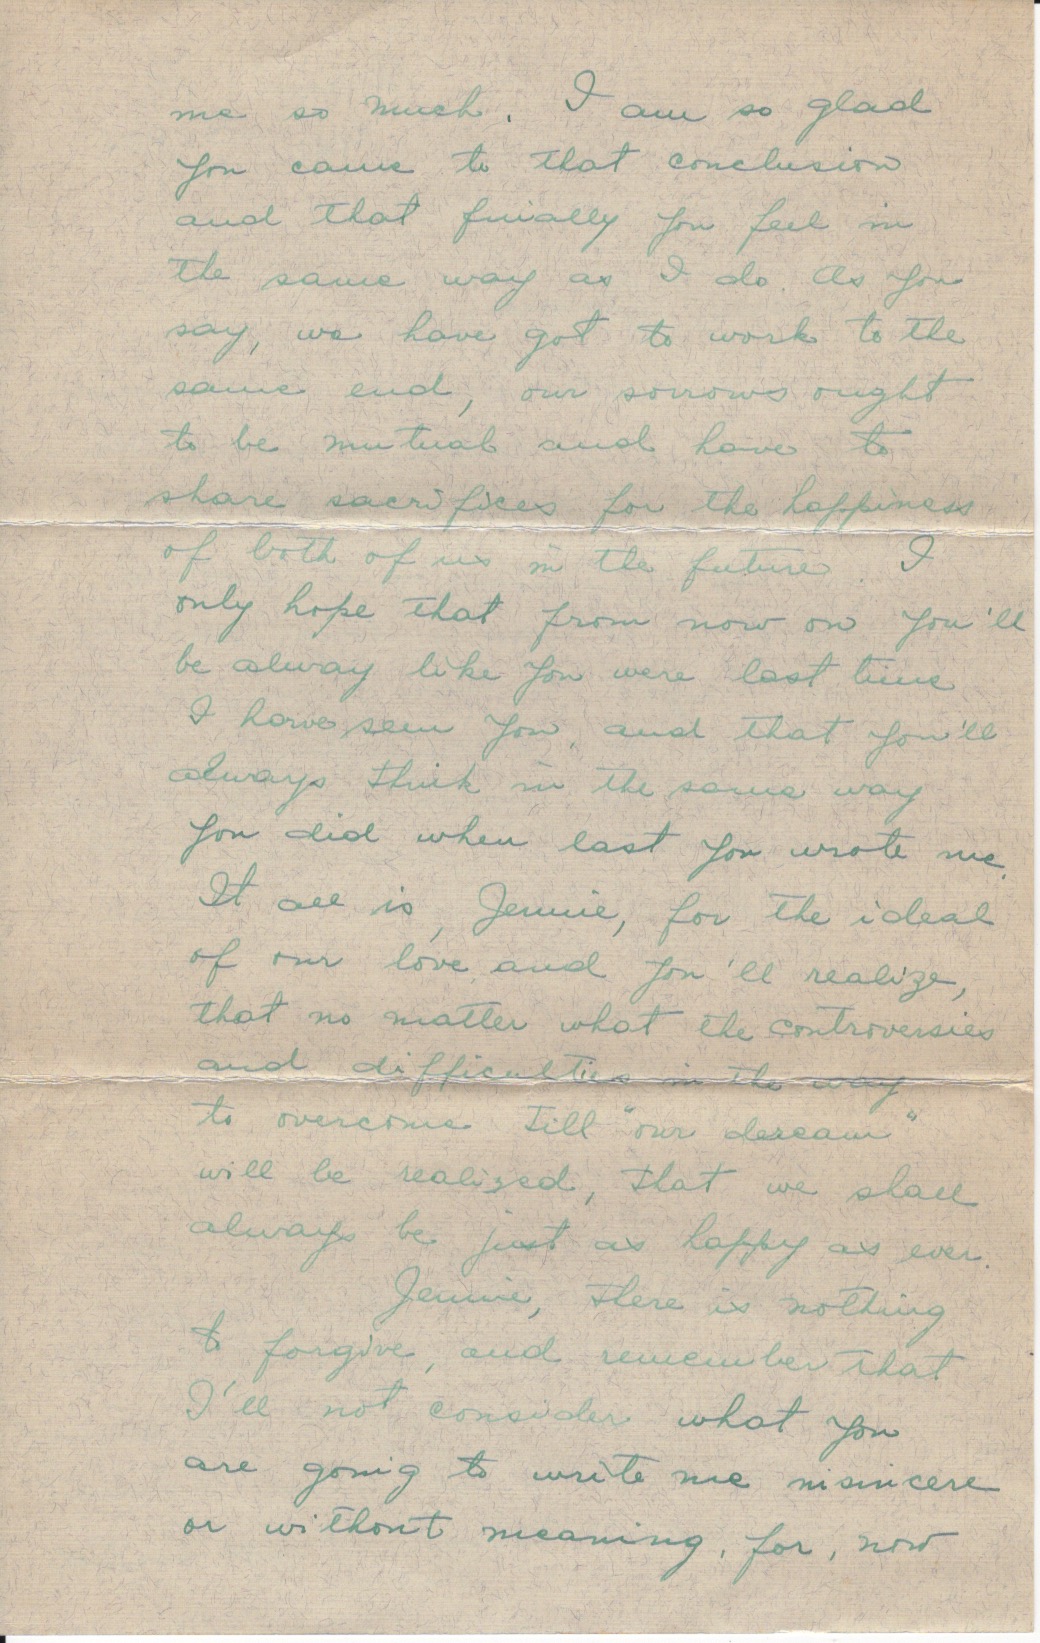 me so much. I am so glad
you came to that conclusion
and that finally you feel in
the same way as I do. As you
say, we have got to work to the
same end, our sorrows ought
to be mutual and have to
share sacrifices for the happiness
of both of us in the future. I
only hope that from now on you'll
be alway like you were last time
I have seen you, and that you'll
always think in the same way
you did when last you wrote me.
It all is, Jennie, for the ideal
of our love and you'll realize,
that no matter what the controversies
and difficulties in the way
to overcome till "our dream"
will be realized, that we shall
always be just as happy as ever.
Jennie, there is nothing
to forgive, and remember that
I'll not consider what you
are going to write me insincere
or without meaning, for, now